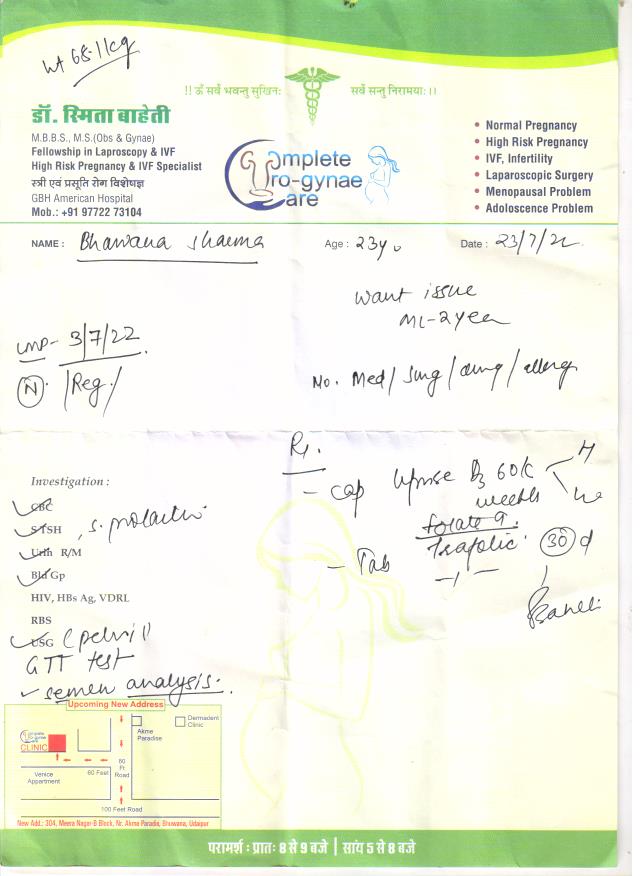 wt 68.11kg
!! ॐ सर्वे भवन्तु सुखिनः सर्वे सन्तु निरामयाः।।
डॉ. स्मिता बाहेती
M.B.B.S., M.S.(Obs & Gynae)
Fellowship in Laproscopy & IVF
High Risk Pregnancy & IVF Specialist
स्त्री एवं प्रसूति रोग विशेषज्ञ
GBH American Hospital
Mob.: +91 97722 73104
Complete
Uro-gynae
Care
• Normal Pregnancy
• High Risk Pregnancy
• IVF, Infertility
• Laparoscopic Surgery
• Menopausal Problem
• Adoloscence Problem
NAME : Bhawana Sharma Age : 23y. Date : 23/7/22
want issue
ML-2 year
LMP- 3/7/22
(N) /Reg/
No. Med/ Surg / /allergy
Rx.
- cap Uprise D3 60K
weekly
Folate 9.
- Tab Trafolic 30 d
Investigation :
CBC
S TSH , S. prolactin
Urin R/M
Bld Gp
HIV, HBs Ag, VDRL
RBS
USG (pelvis)
GTT test
semen analysis.
Upcoming New Address
Complete
Uro-gynae
Care
CLINIC
Akme
Paradise
Dermadent
Clinic
Venice
Appartment
60 Feet
60
Ft
Road
100 Feet Road
New Add.: 304, Meera Nagar-B Block, Nr. Akme Paradis, Bhuwana, Udaipur
परामर्श : प्रातः 8 से 9 बजे | सांय 5 से 8 बजे